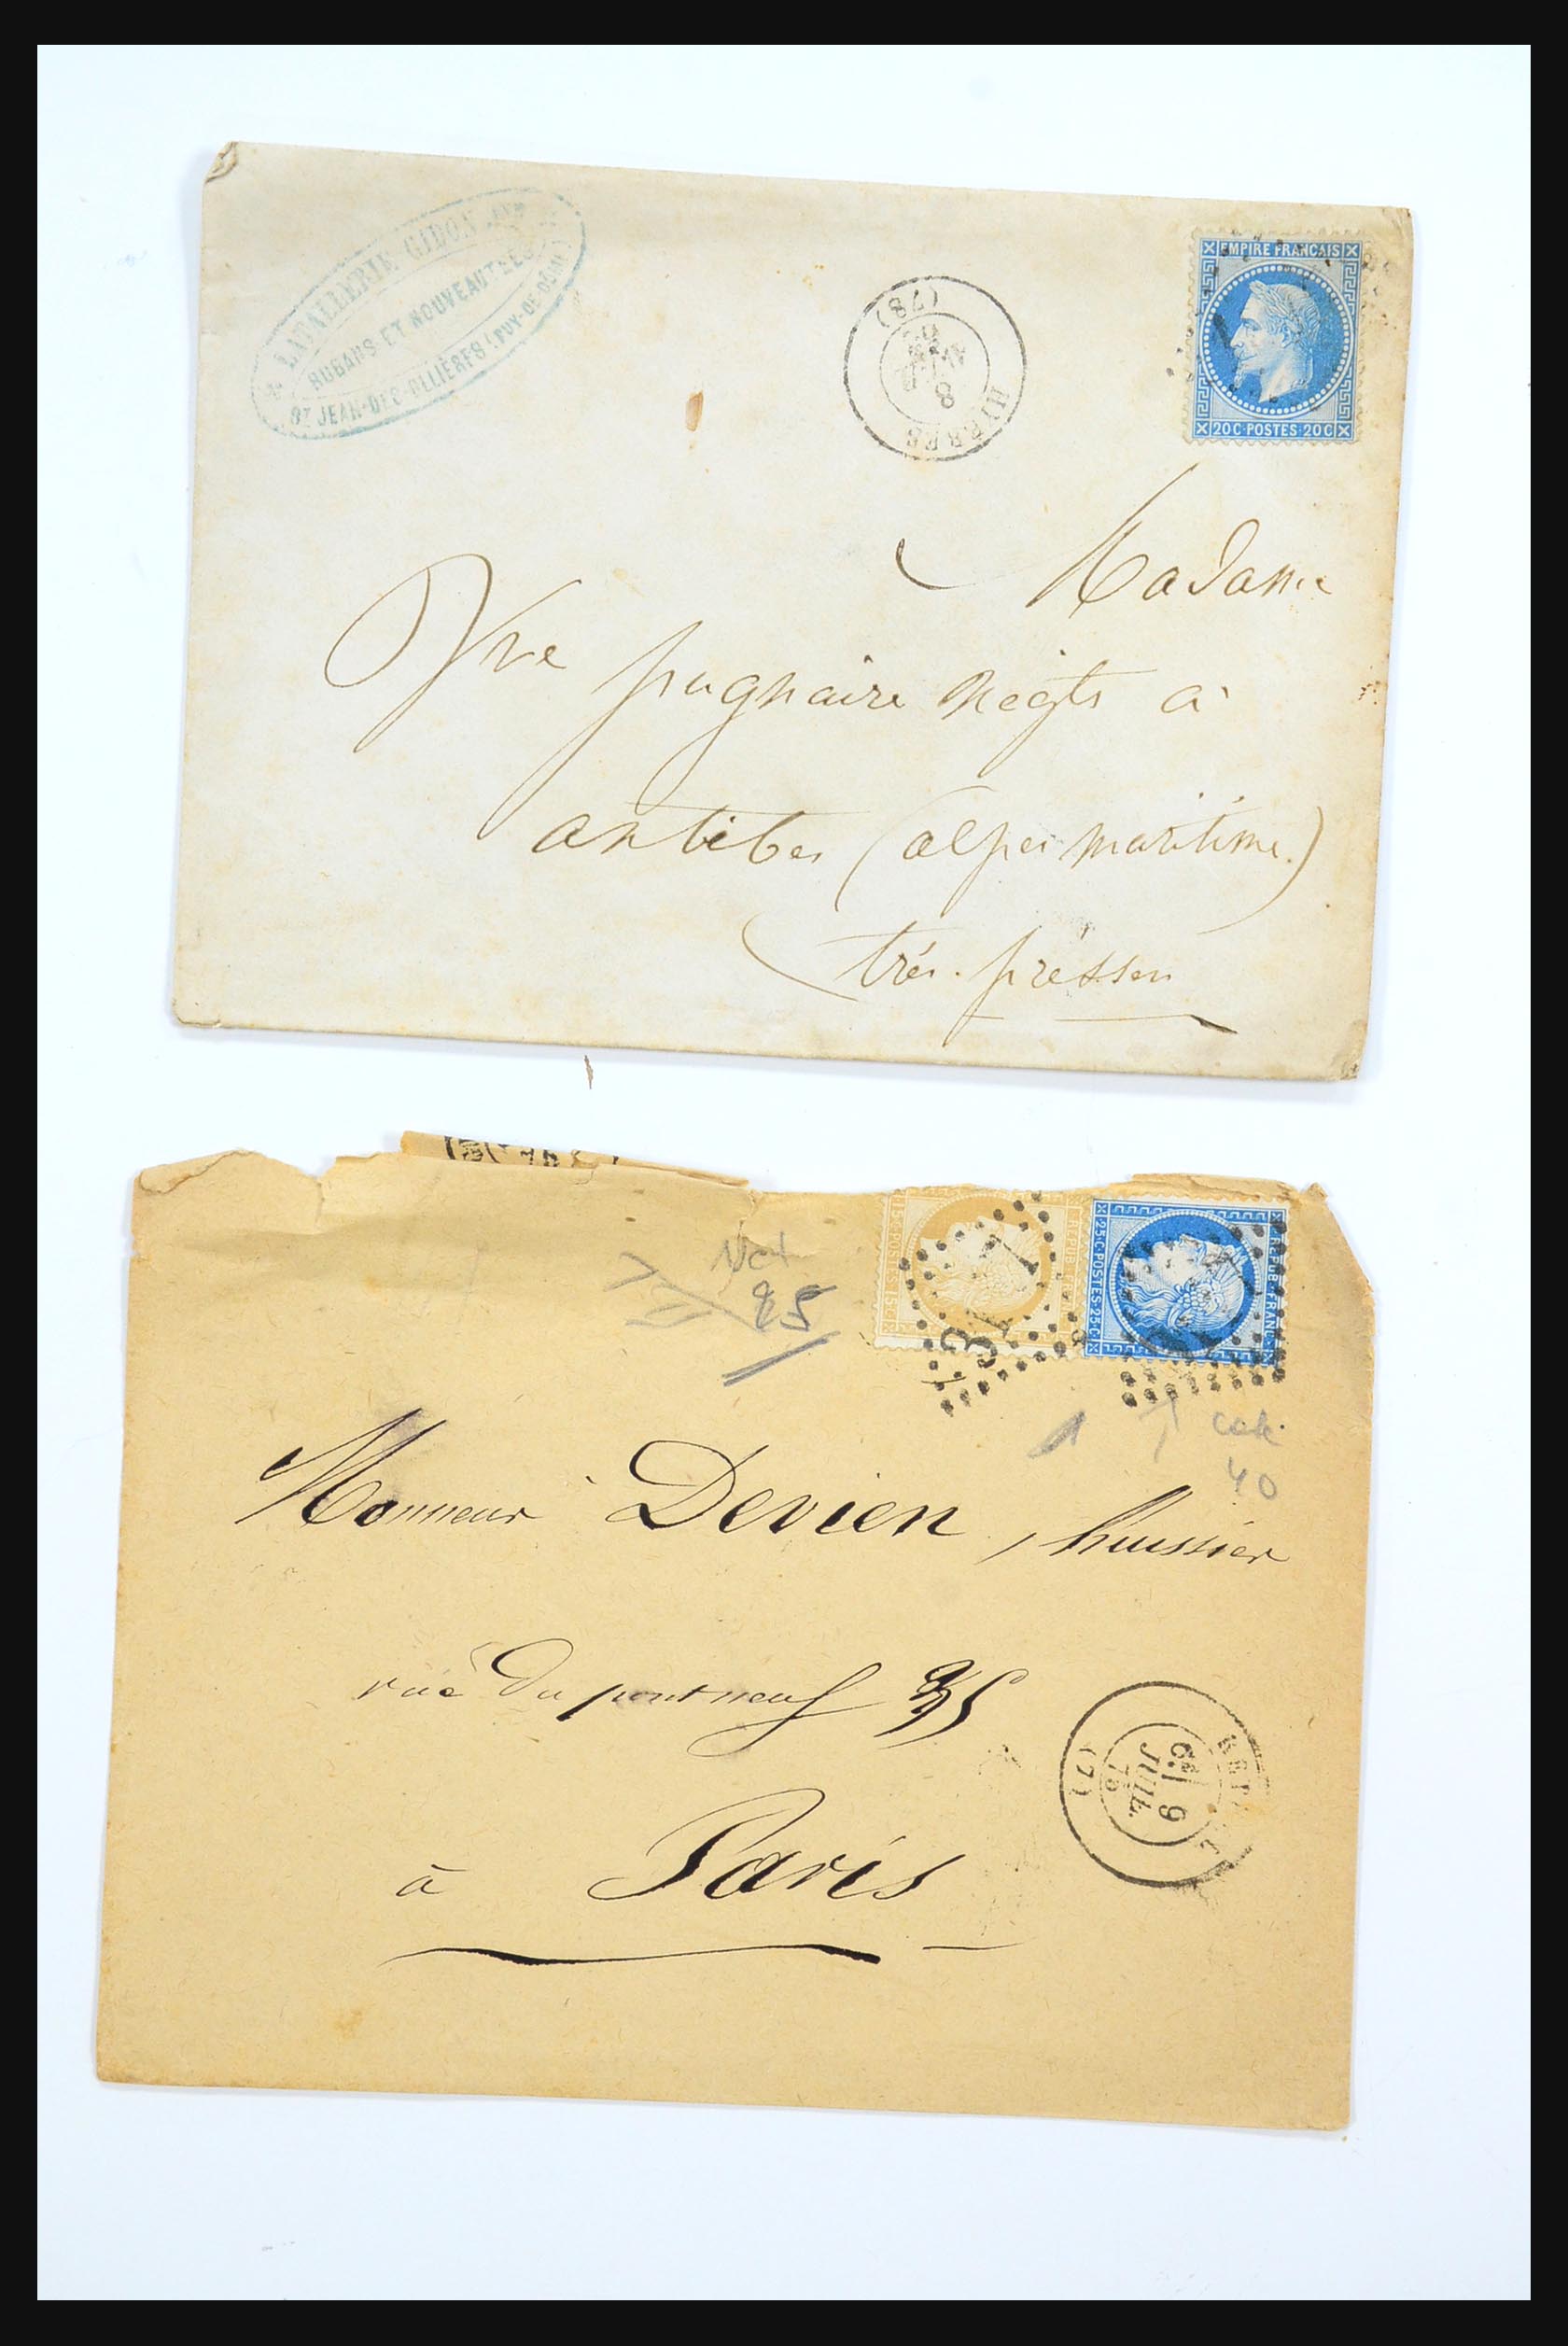 LADALLERIE GIDON
RUBANS ET NOUVEAUTÉES
ST JEAN-DES-OLLIÈRES (PUY-DE-DÔME)
(78)
HYERES
8
EMPIRE FRANÇAIS
20 C POSTES 20 C
Madame
Vve pugnaire négts a
antibes (alpes maritime.)
très. pressen
REPUB. FRANC.
15 C. POSTES 15 C.
REPUB. FRANC.
25 C. POSTES 25 C.
Net
85
1
cote
40
Monsieur Devien, huissier
rue du pont neuf 35
à Paris
9
JUIL.
(7)